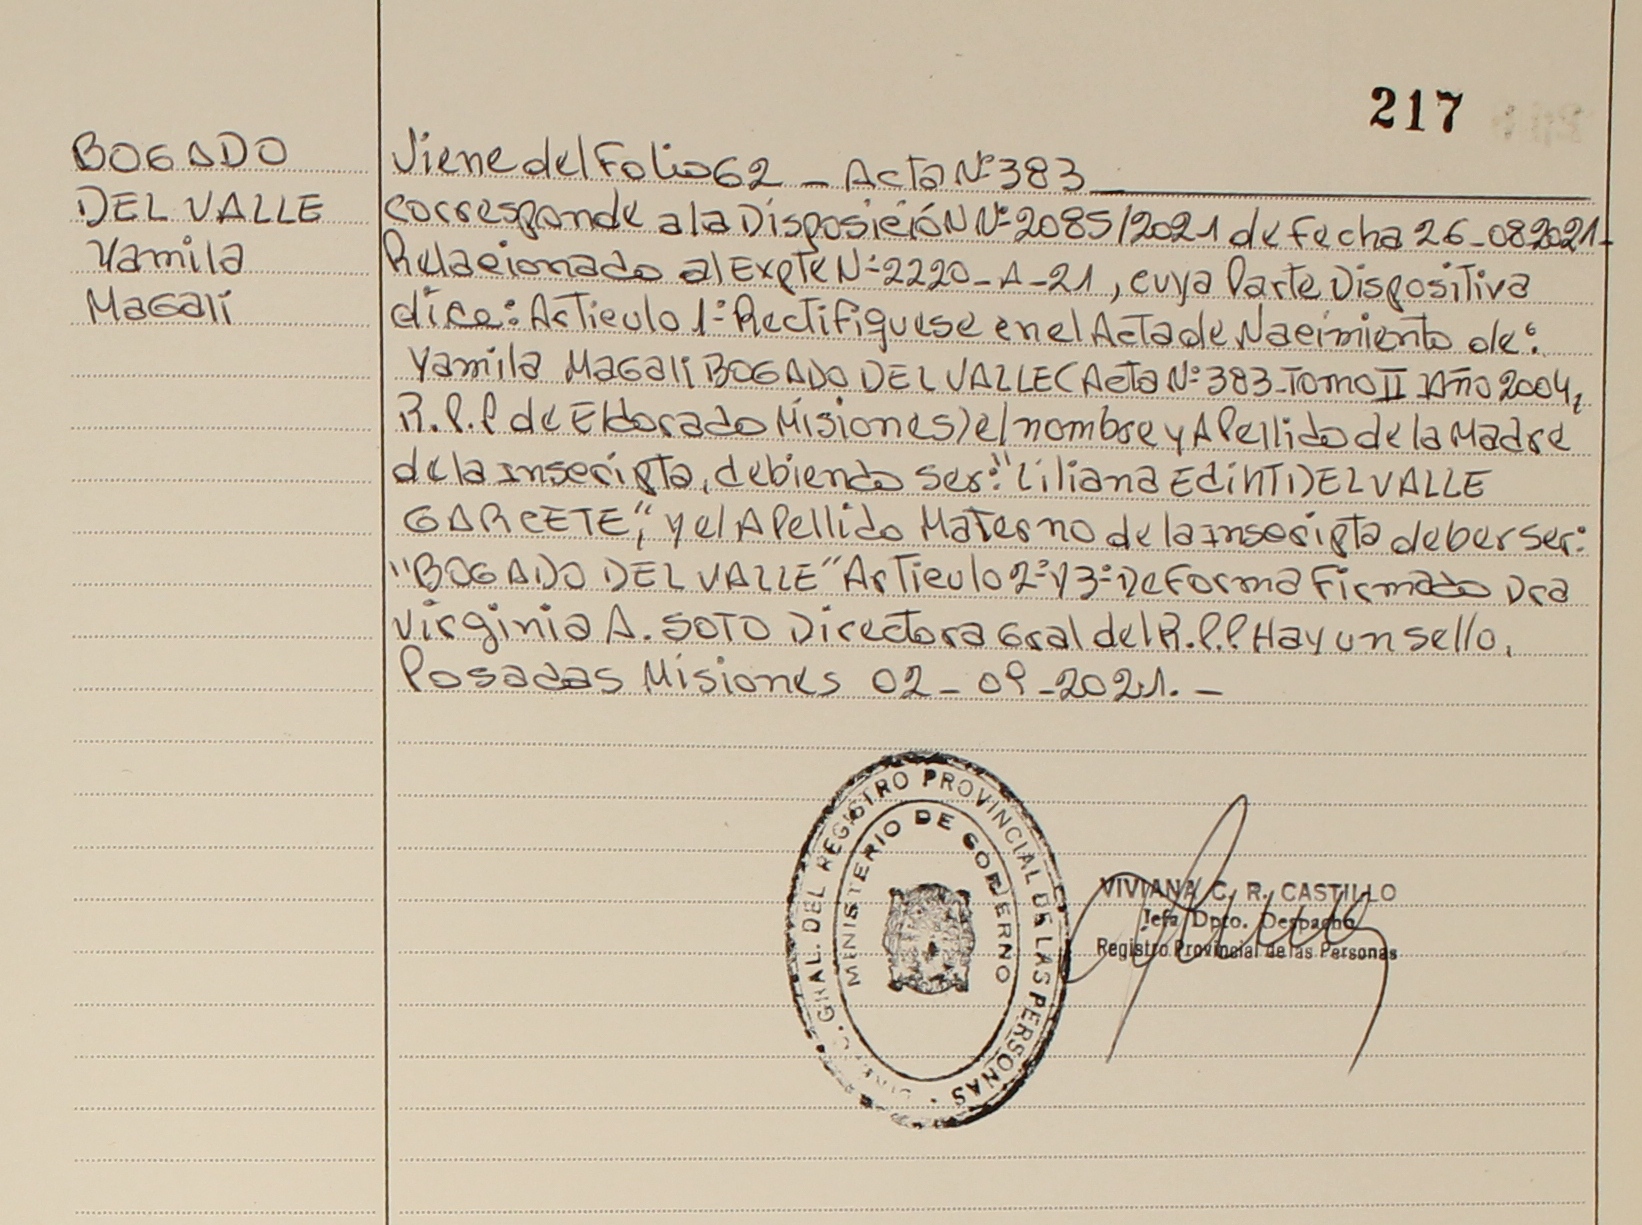 217
BOGADO
DEL VALLE
Yamila
Magalí
Viene del Folio 62 _ Acta Nº 383
corresponde a la Disposición Nº 2085/2021 de fecha 26_08 2021_
Relacionado al Expte Nº 2220_A_21, cuya Parte Dispositiva
dice: Artículo 1º Rectifíquese en el Acta de Nacimiento de:
Yamila Magalí BOGADO DEL VALLE (Acta Nº 383_Tomo II Año 2004,
R.P.P de Eldorado Misiones) el nombre y Apellido de la Madre
de la Inscripta, debiendo ser: "Liliana Ediht DEL VALLE
GARCETE", y el Apellido Materno de la Inscripta deber ser:
"BOGADO DEL VALLE" Artículo 2º y 3º De Forma Firmado Dra
Virginia A. SOTO Directora Gral del R.P.P Hay un sello.
Posadas Misiones 02_09_2021._
GRAL. DEL REGISTRO PROVINCIAL DE LAS PERSONAS
MINISTERIO DE GOBIERNO
VIVIANA C. R. CASTILLO
Jefa Dpto. Despacho
Registro Provincial de las Personas